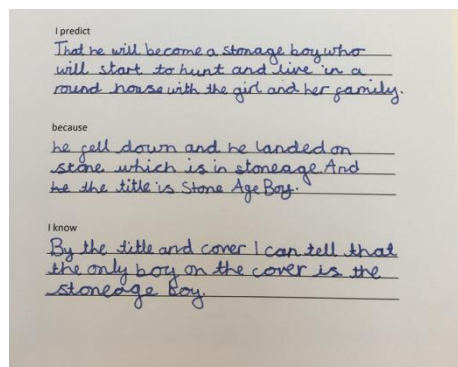 I predict
That he will become a stonage boy who
will start to hunt and live in a
round house with the girl and her family.
because
he fell down and he landed on
stone which is in stoneage. And
he the title is Stone Age Boy.
I know
By the title and cover I can tell that
the only boy on the cover is the
stoneage boy.